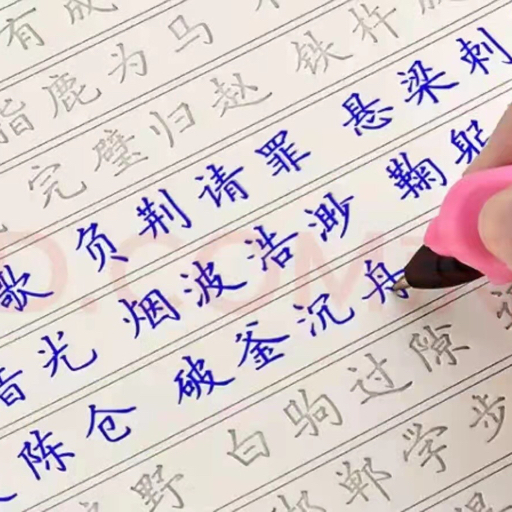 有成
指鹿为马
完璧归赵 铁杵
歌 负荆请罪 悬梁刺
音光 烟波浩渺 鞠躬
陈仓 破釜沉舟
野 白驹过隙
邯郸学步